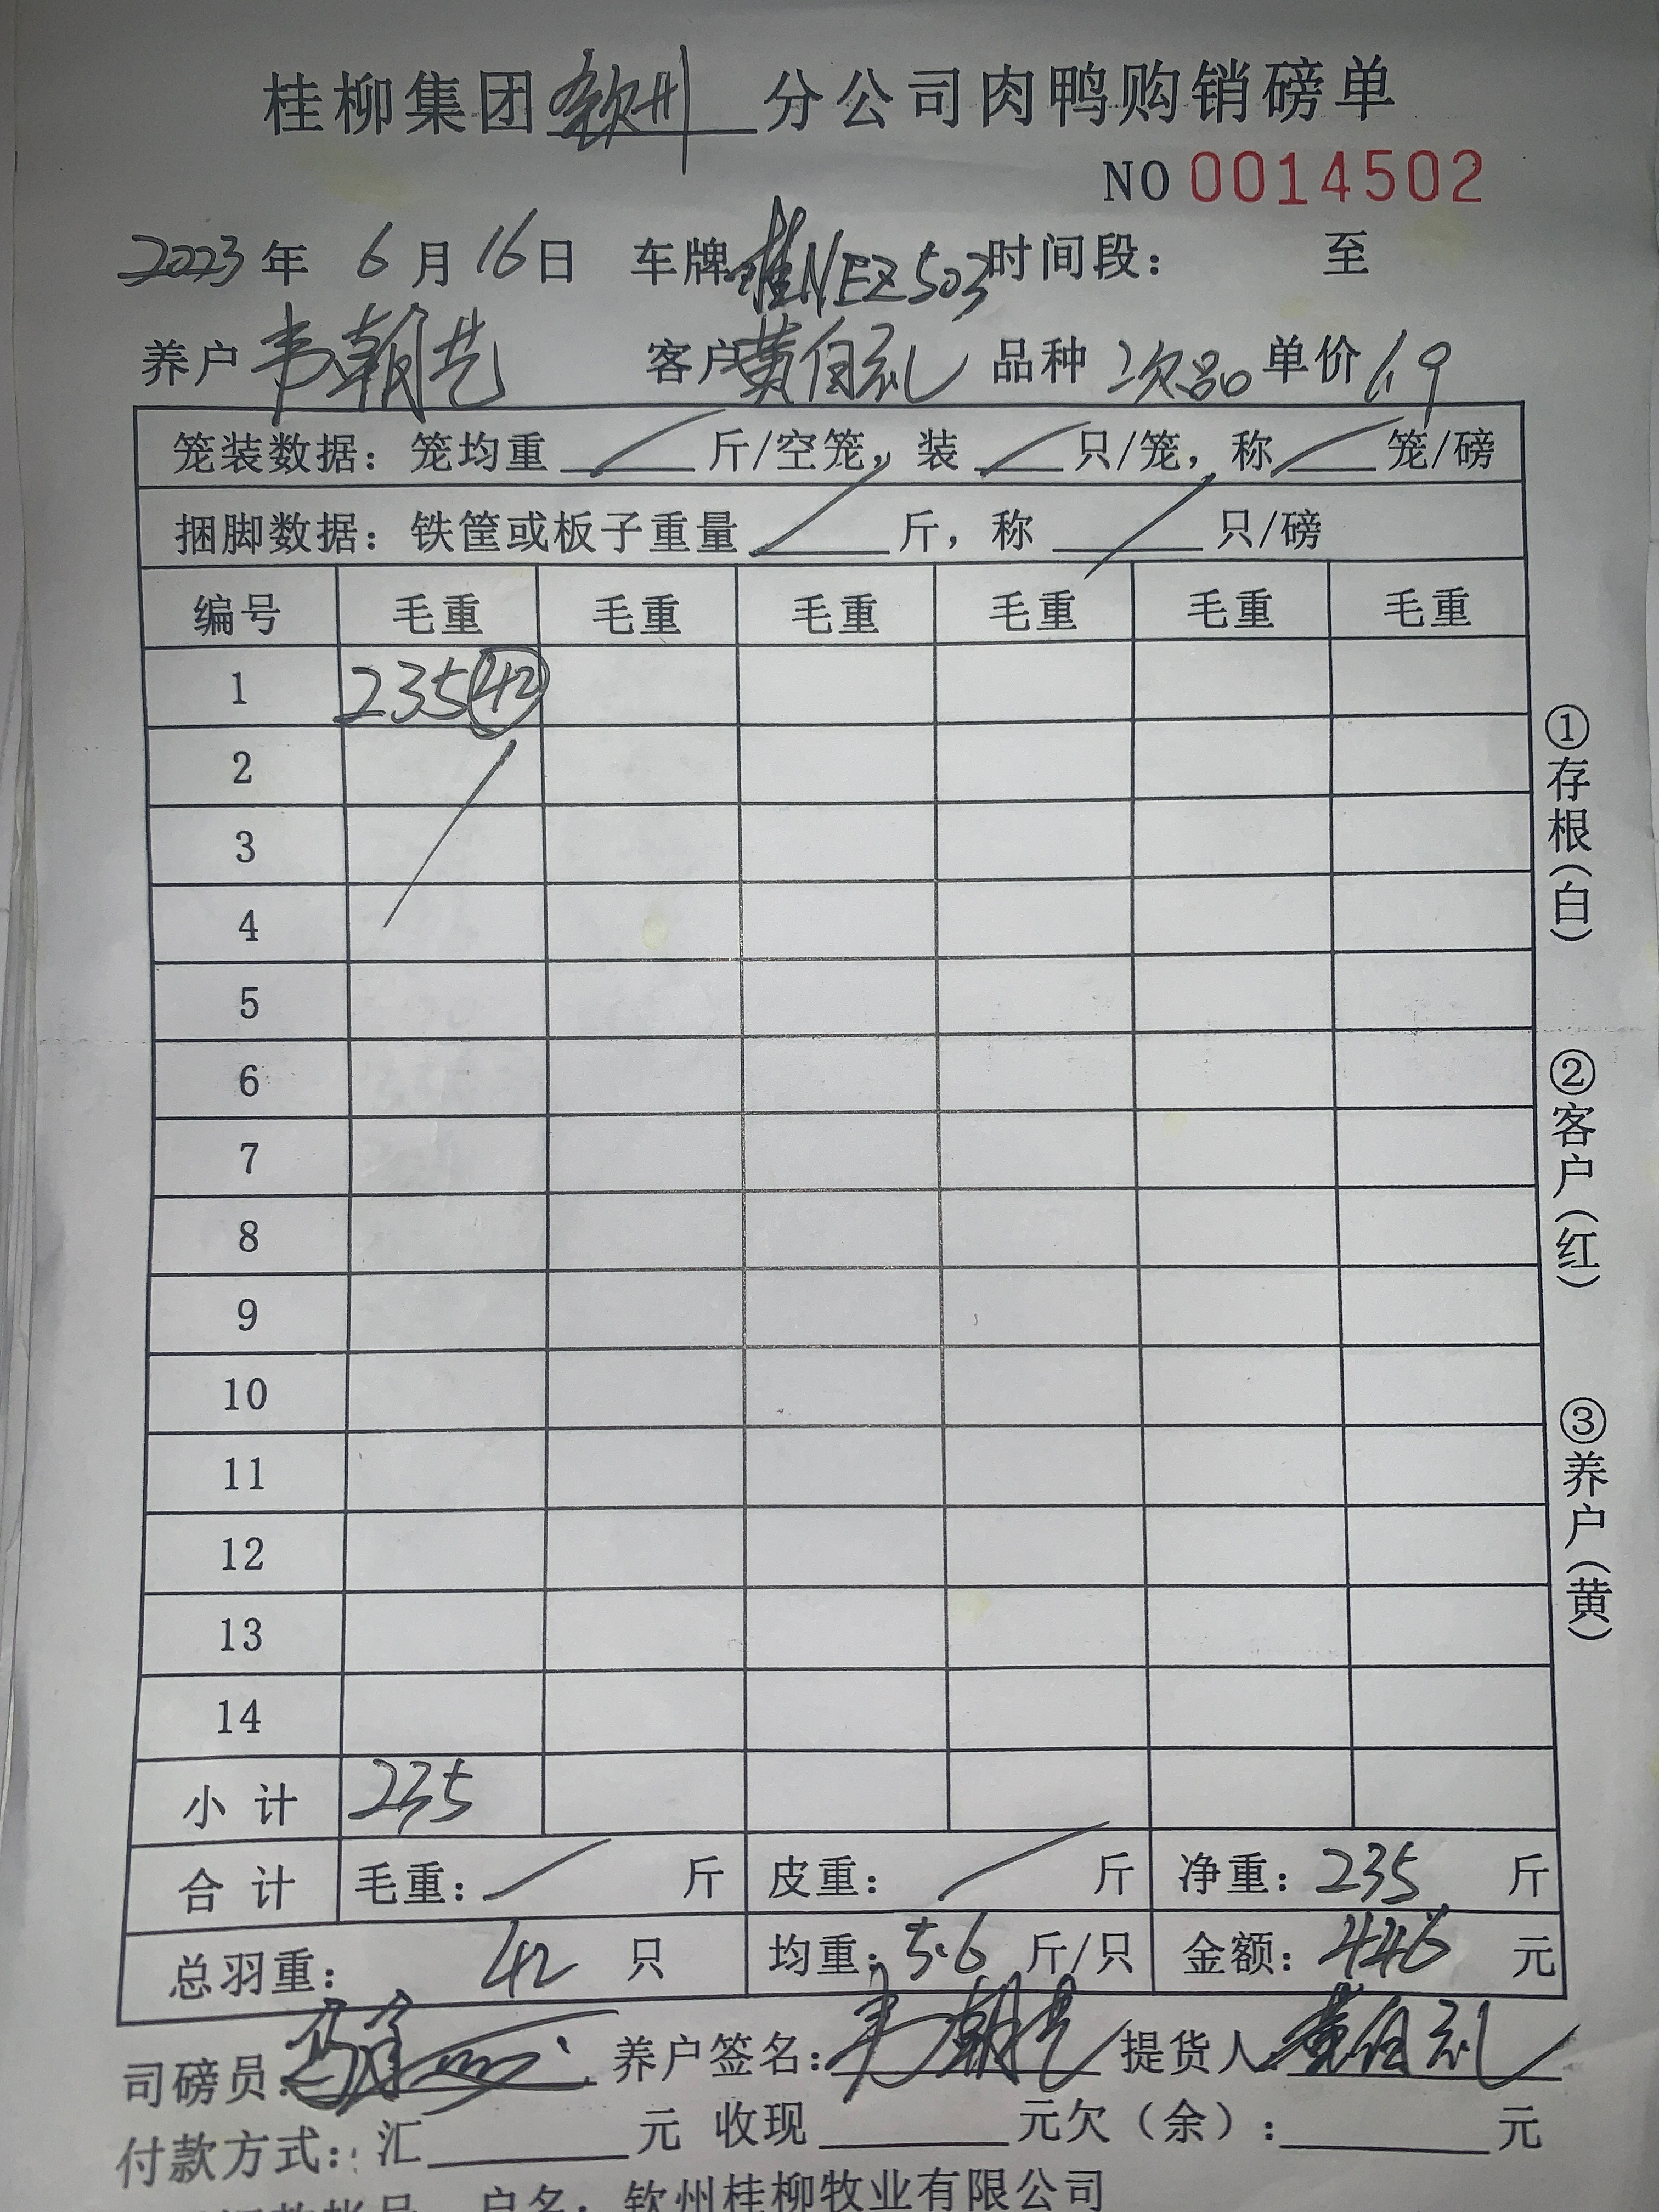 桂柳集团钦州分公司肉鸭购销磅单
NO 0014502
2023年 6月16日 车牌桂NEZ503时间段： 至
养户 韦朝艺 客户黄伯礼 品种 次品 单价1.9
笼装数据：笼均重 斤/空笼，装 只/笼，称 笼/磅
捆脚数据：铁筐或板子重量 斤，称 只/磅
编号 毛重 毛重 毛重 毛重 毛重 毛重
1 235 42
2
3
4
5
6
7
8
9
10
11
12
13
14
小 计 235
合 计 毛重： 斤 皮重： 斤 净重：235 斤
总羽重： 42 只 均重：5.6 斤/只 金额：446 元
司磅员： 养户签名： 提货人
付款方式：汇 元 收现 元欠（余）： 元
户名：钦州桂柳牧业有限公司
①存根（白）
②客户（红）
③养户（黄）